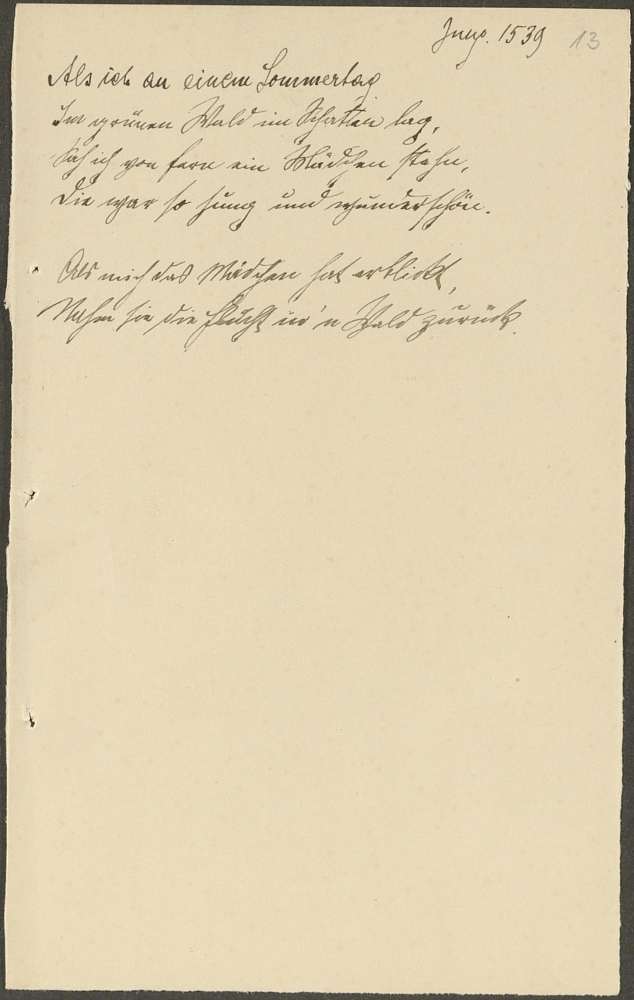 1539 13
Als ich an einem Sommertag
Im grünen Wald im Schatten lag,
Sah ich von fern ein Mädchen stehn,
Die war so jung und wunderschön.
Als mich das Mädchen hat erblickt,
Nahm sie die Flucht in'n Wald zurück.